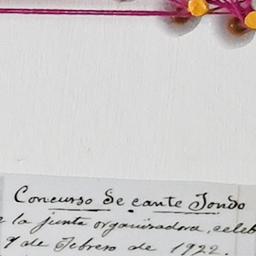 Concurso de cante Jondo
la junta organizadora, celeb
9 de Febrero de 1922.